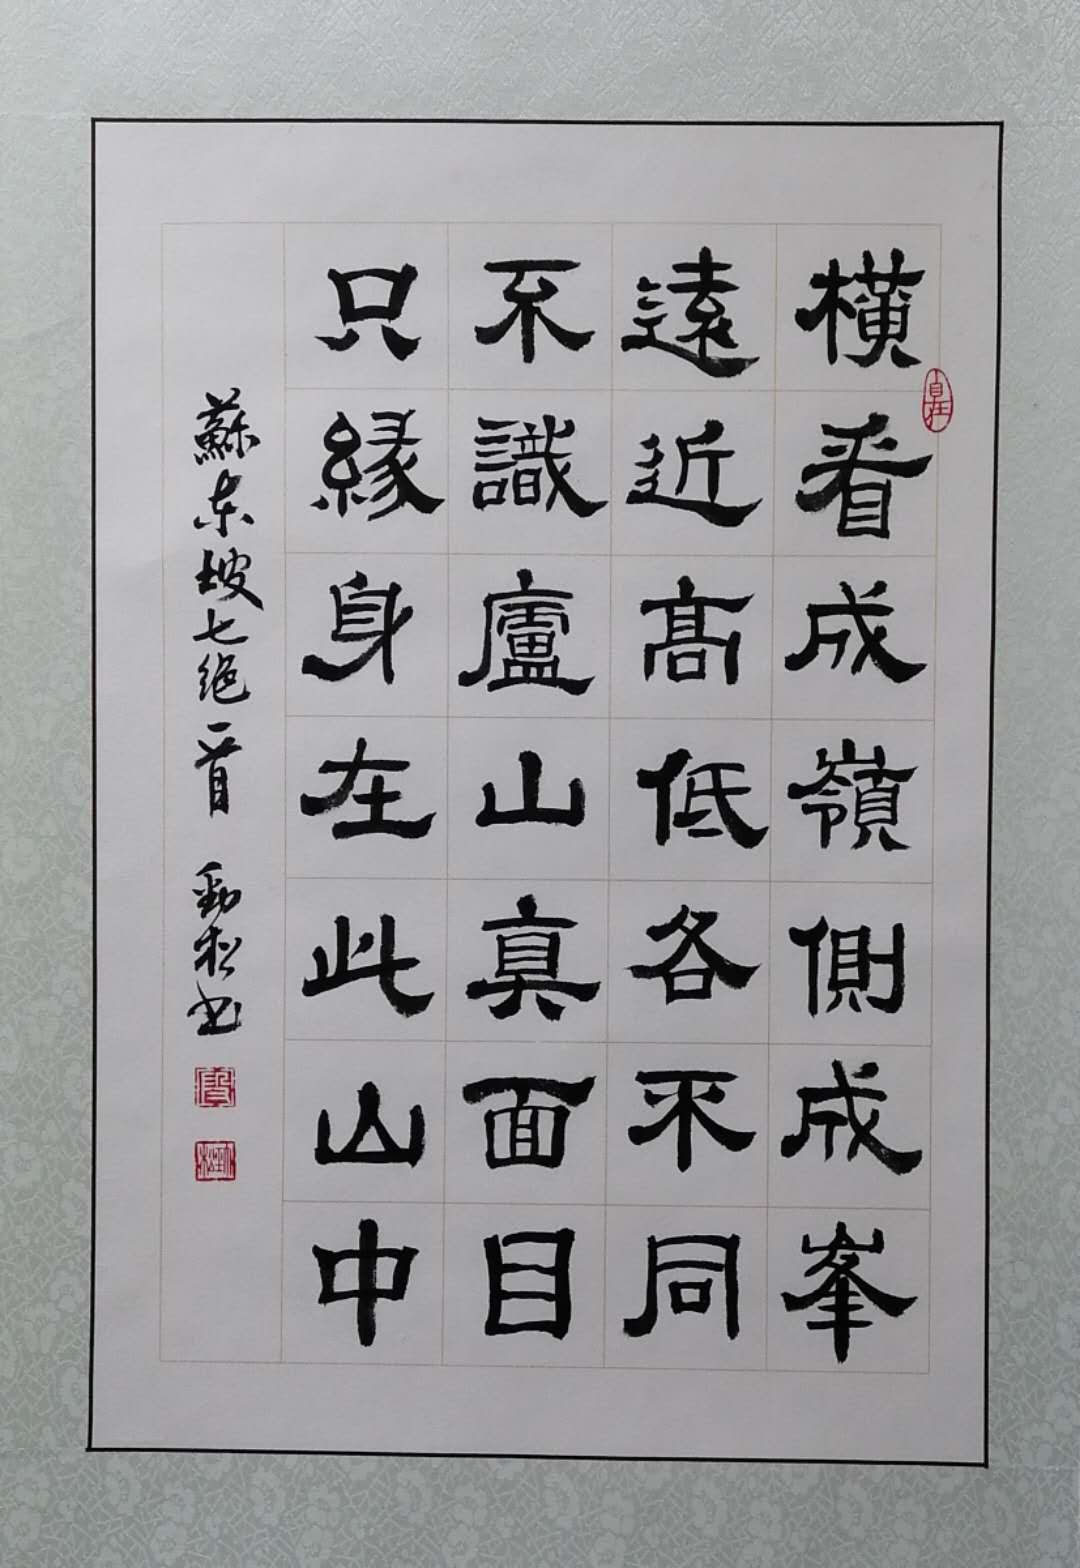 橫看成嶺側成峯
遠近髙低各不同
不識廬山真面目
只緣身在此山中
蘇東坡七絕一首 勁松书
自在